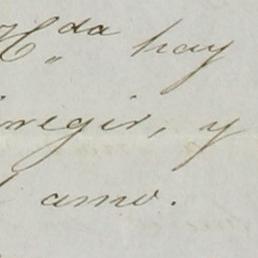 H.da hay
regir, y
amo.